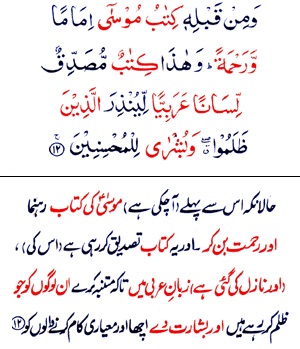 وَمِنْ قَبْلِهٖ كِتٰبُ مُوْسٰٓى اِمَامًا
وَّرَحْمَةً ؕ وَهٰذَا كِتٰبٌ مُّصَدِّقٌ
لِّسَانًا عَرَبِيًّا لِّيُنْذِرَ الَّذِيْنَ
ظَلَمُوْا ۖ وَبُشْرٰى لِلْمُحْسِنِيْنَ ﴿۱۲﴾
حالانکہ اس سے پہلے (آچکی ہے) موسیٰؑ کی کتاب رہنما
اور رحمت بن کر۔ اور یہ کتاب تصدیق کر رہی ہے (اس کی)،
(اور نازل کی گئی ہے) زبانِ عربی میں تاکہ متنبہ کرے ان لوگوں کو جو
ظلم کر رہے ہیں اور بشارت دے اچھا اور معیاری کام کرنے والوں کو ﴿۱۲﴾